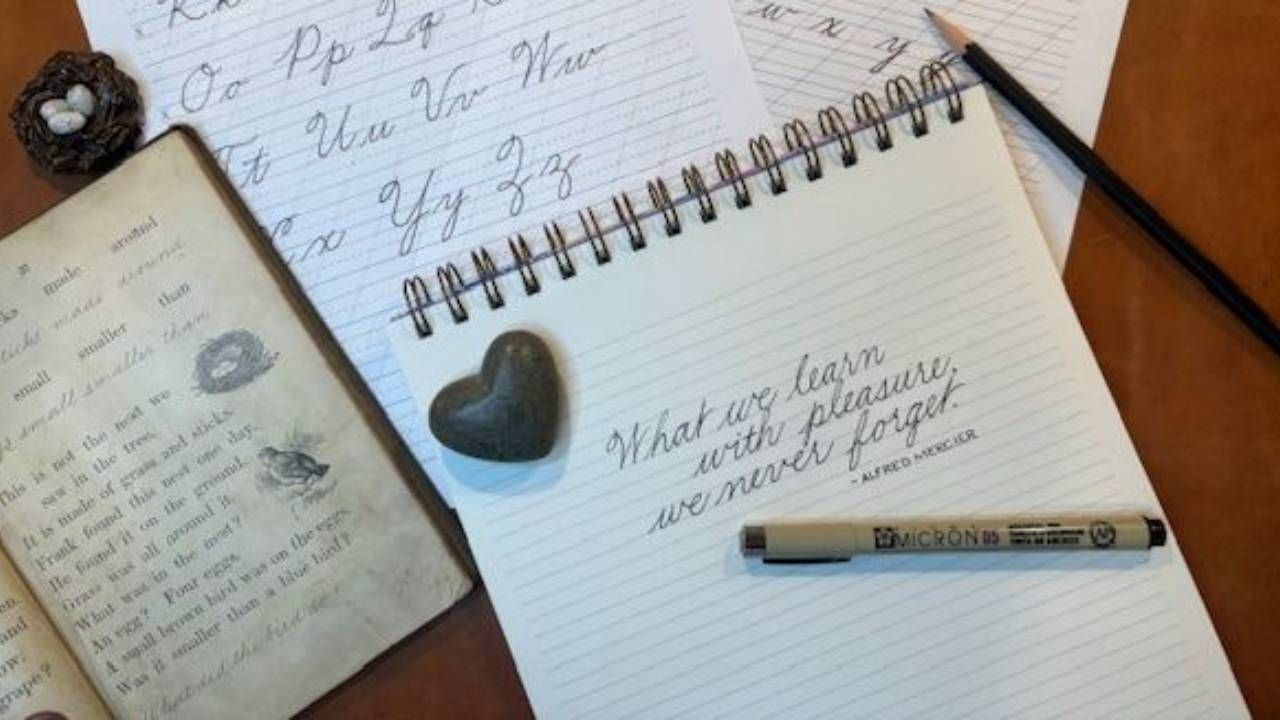 Kk
Oo Pp Qq
Tt Uu Vv Ww
Xx Yy Zz
w x y
made around
sticks made around
small smaller than
small smaller than
This is not the nest we
saw in the tree.
It is made of grass and sticks.
Frank found this nest one day.
He found it on the ground.
Grass was all around it.
What was in the nest?
An egg? Four eggs.
A small brown bird was on the eggs.
Was it smaller than a blue bird?
What did the bird do?
and
grape?
What we learn
with pleasure,
we never forget.
- ALFRED MERCIER
MICRON 05